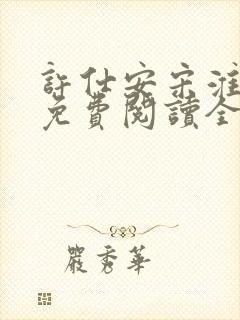 許仕安宋淮
免費閱讀全
嚴秀華